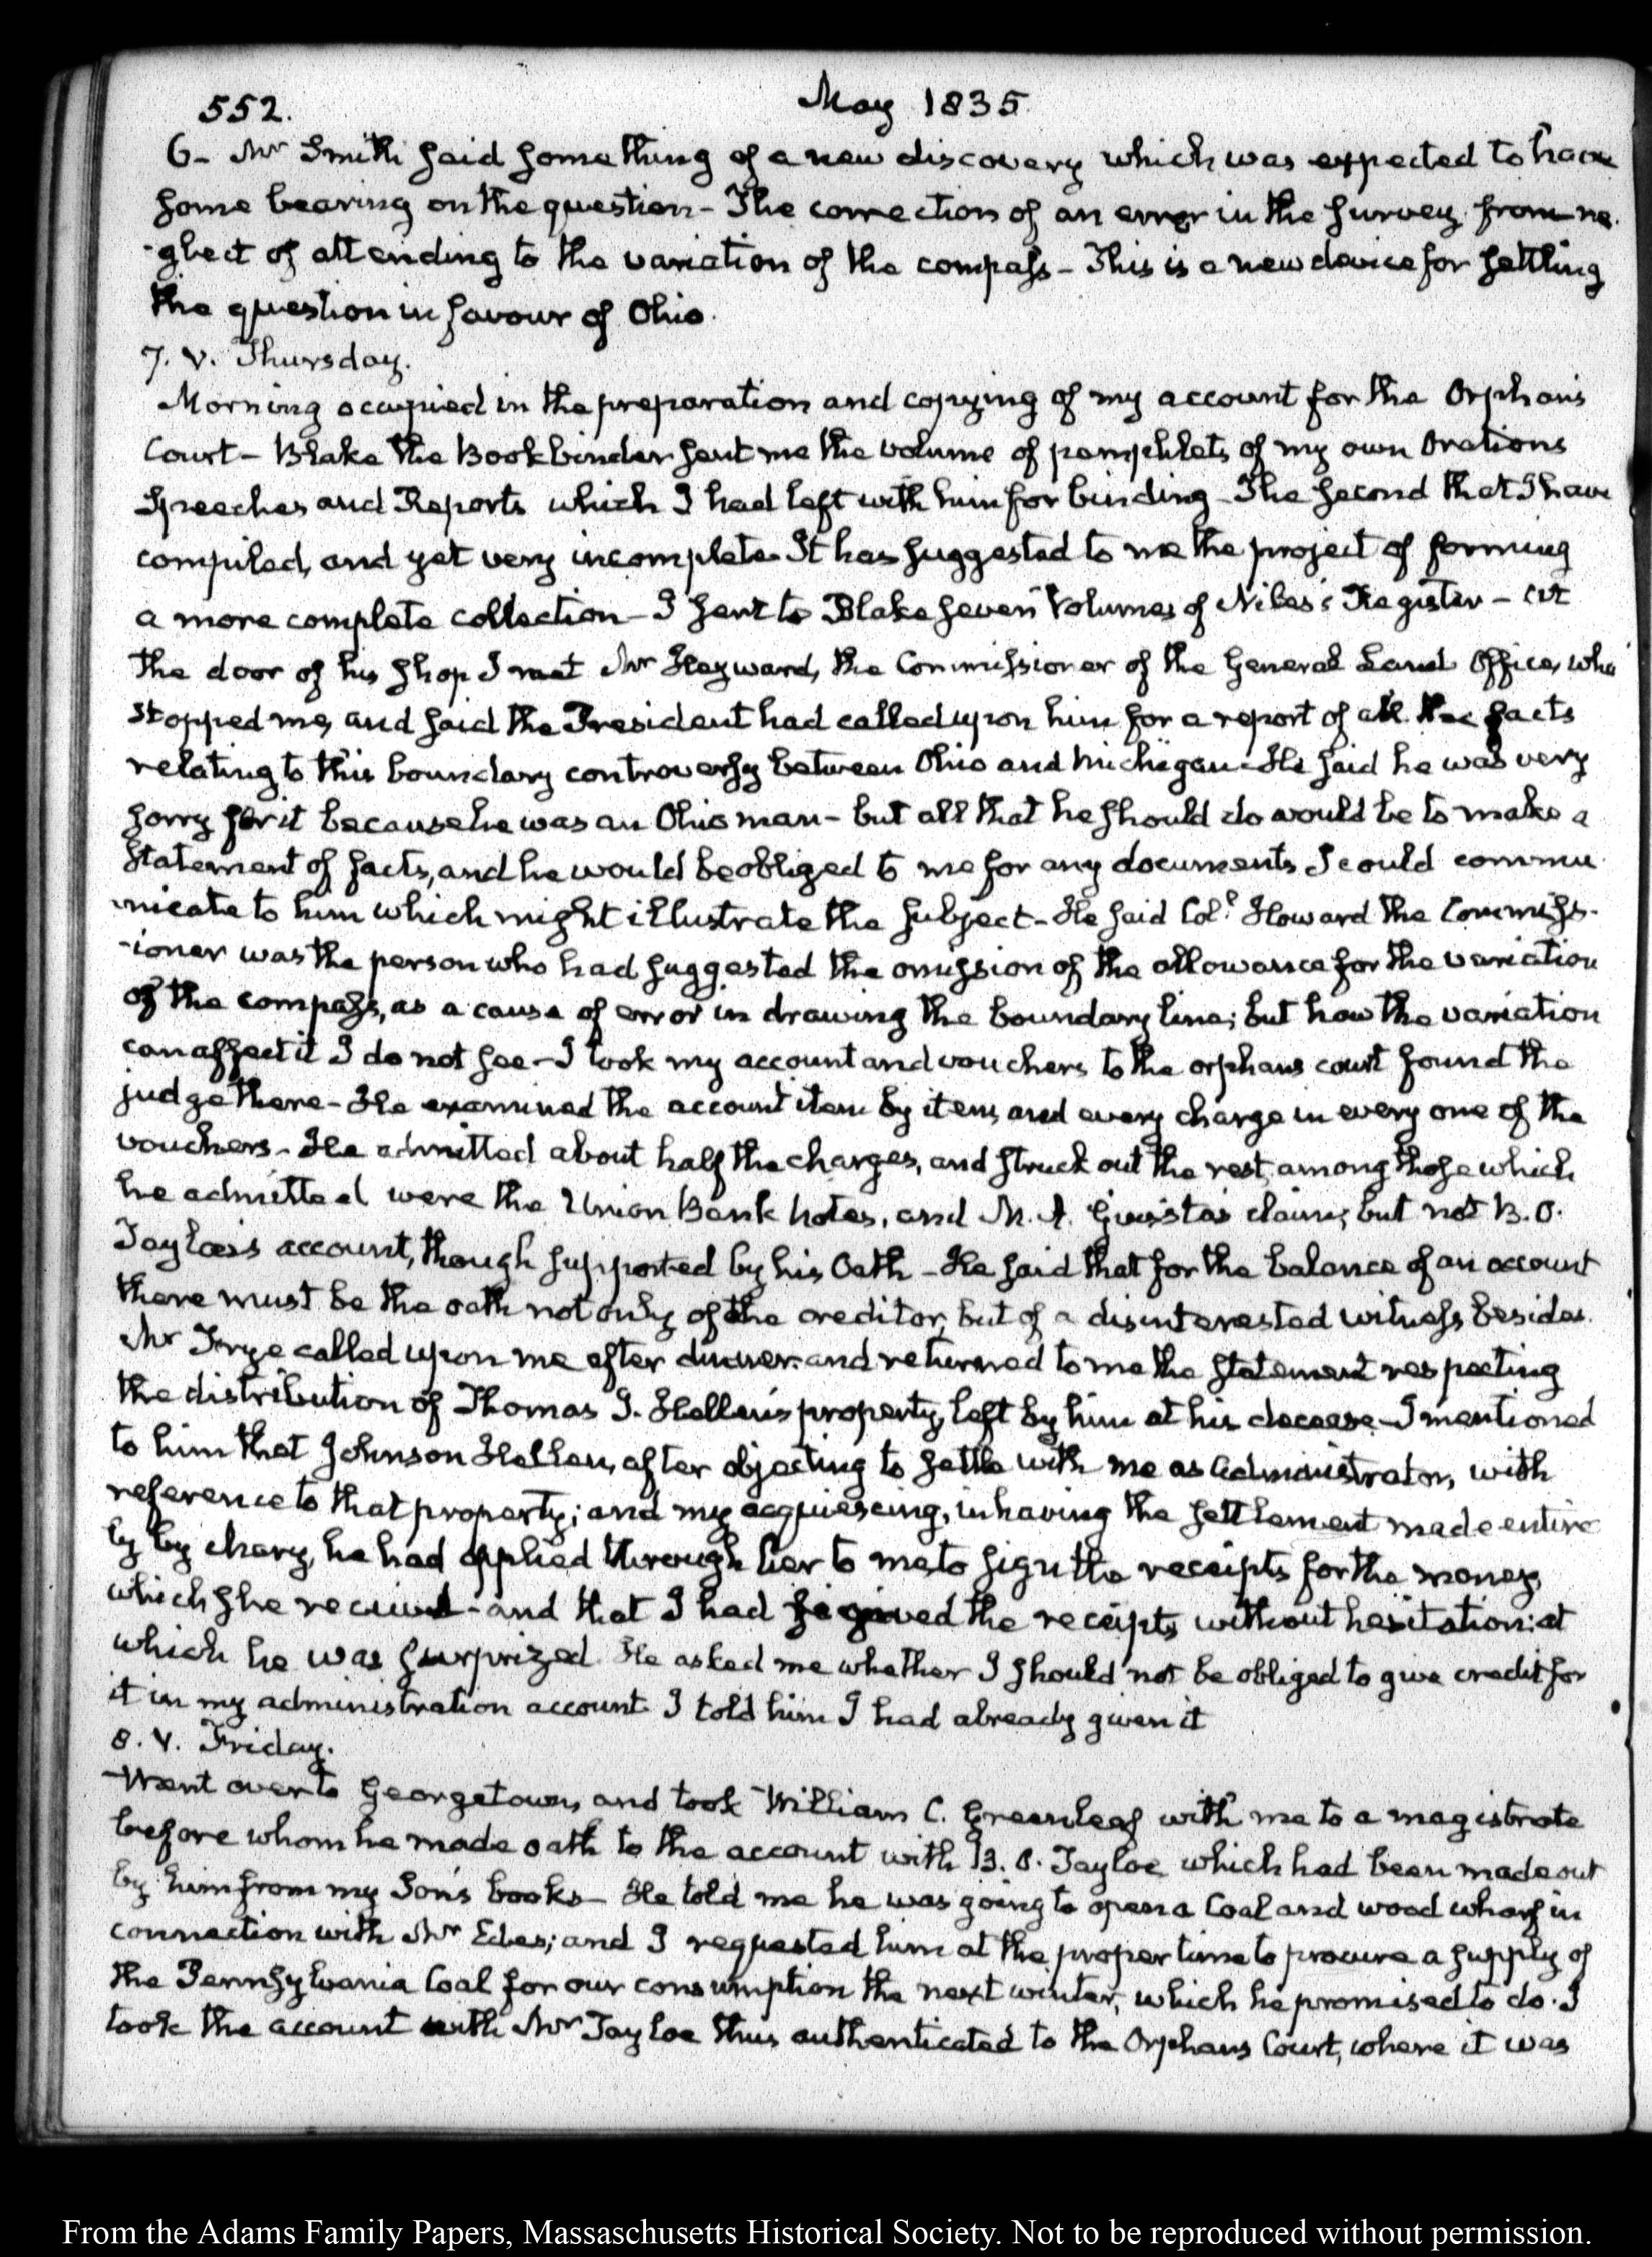 552.
May 1835
6- Mr Smith said something of a new discovery which was expected to have
some bearing on the question - The correction of an error in the survey from ne-
-glect of attending to the variation of the compass - This is a new device for settling
the question in favour of Ohio.
7. V. Thursday.
Morning occupied in the preparation and copying of my account for the Orphans
Court - Blake the Bookbinder sent me the volume of pamphlets of my own Orations
Speeches and Reports which I had left with him for binding - The second that I have
compiled, and yet very incomplete. It has suggested to me the project of forming
a more complete collection - I sent to Blake seven Volumes of Niles's Register - At
the door of his shop I met Mr Hayward, the Commissioner of the General Land Office, who
stopped me, and said the President had called upon him for a report of all the facts
relating to this boundary controversy between Ohio and Michigan - He said he was very
sorry for it because he was an Ohio man - but all that he should do would be to make a
statement of facts, and he would be obliged to me for any documents I could commu-
-nicate to him which might illustrate the subject - He said Col? Howard the Commiss-
-ioner was the person who had suggested the omission of the allowance for the variation
of the compass, as a cause of error in drawing the boundary line; but how the variation
can affect it I do not see - I took my account and vouchers to the orphans court found the
judge there - He examined the account item by item, and every charge in every one of the
vouchers - He admitted about half the charges, and struck out the rest, among those which
he admitted were the Union Bank notes, and M. A. claim; but not B. O.
Tayloe's account, though supported by his Oath - He said that for the balance of an account
there must be the oath not only of the creditor, but of a disinterested witness besides.
Mr Frye called upon me after dinner and returned to me the statement respecting
the distribution of Thomas J. Hellen's property, left by him at his decease - I mentioned
to him that Johnson Hellen, after objecting to settle with me as Administrator, with
reference to that property; and my acquiescing, in having the settlement made entire
ly by chary, he had applied through her to me to sign the receipts for the money
which she received - and that I had signed the receipts without hesitation: at
which he was surprized. He asked me whether I should not be obliged to give credit for
it in my administration account. I told him I had already given it
8. V. Friday.
Went over to Georgetown, and took William C. Greenleaf with me to a magistrate
before whom he made oath to the account with B. O. Tayloe which had been made out
by him from my Son's books - He told me he was going to open a Coal and wood wharf in
connection with Mr Edes; and I requested him at the proper time to procure a supply of
the Pennsylvania Coal for our consumption the next winter, which he promised to do. I
took the account with Mr Tayloe thus authenticated to the Orphans Court, where it was
From the Adams Family Papers, Massachusetts Historical Society. Not to be reproduced without permission.